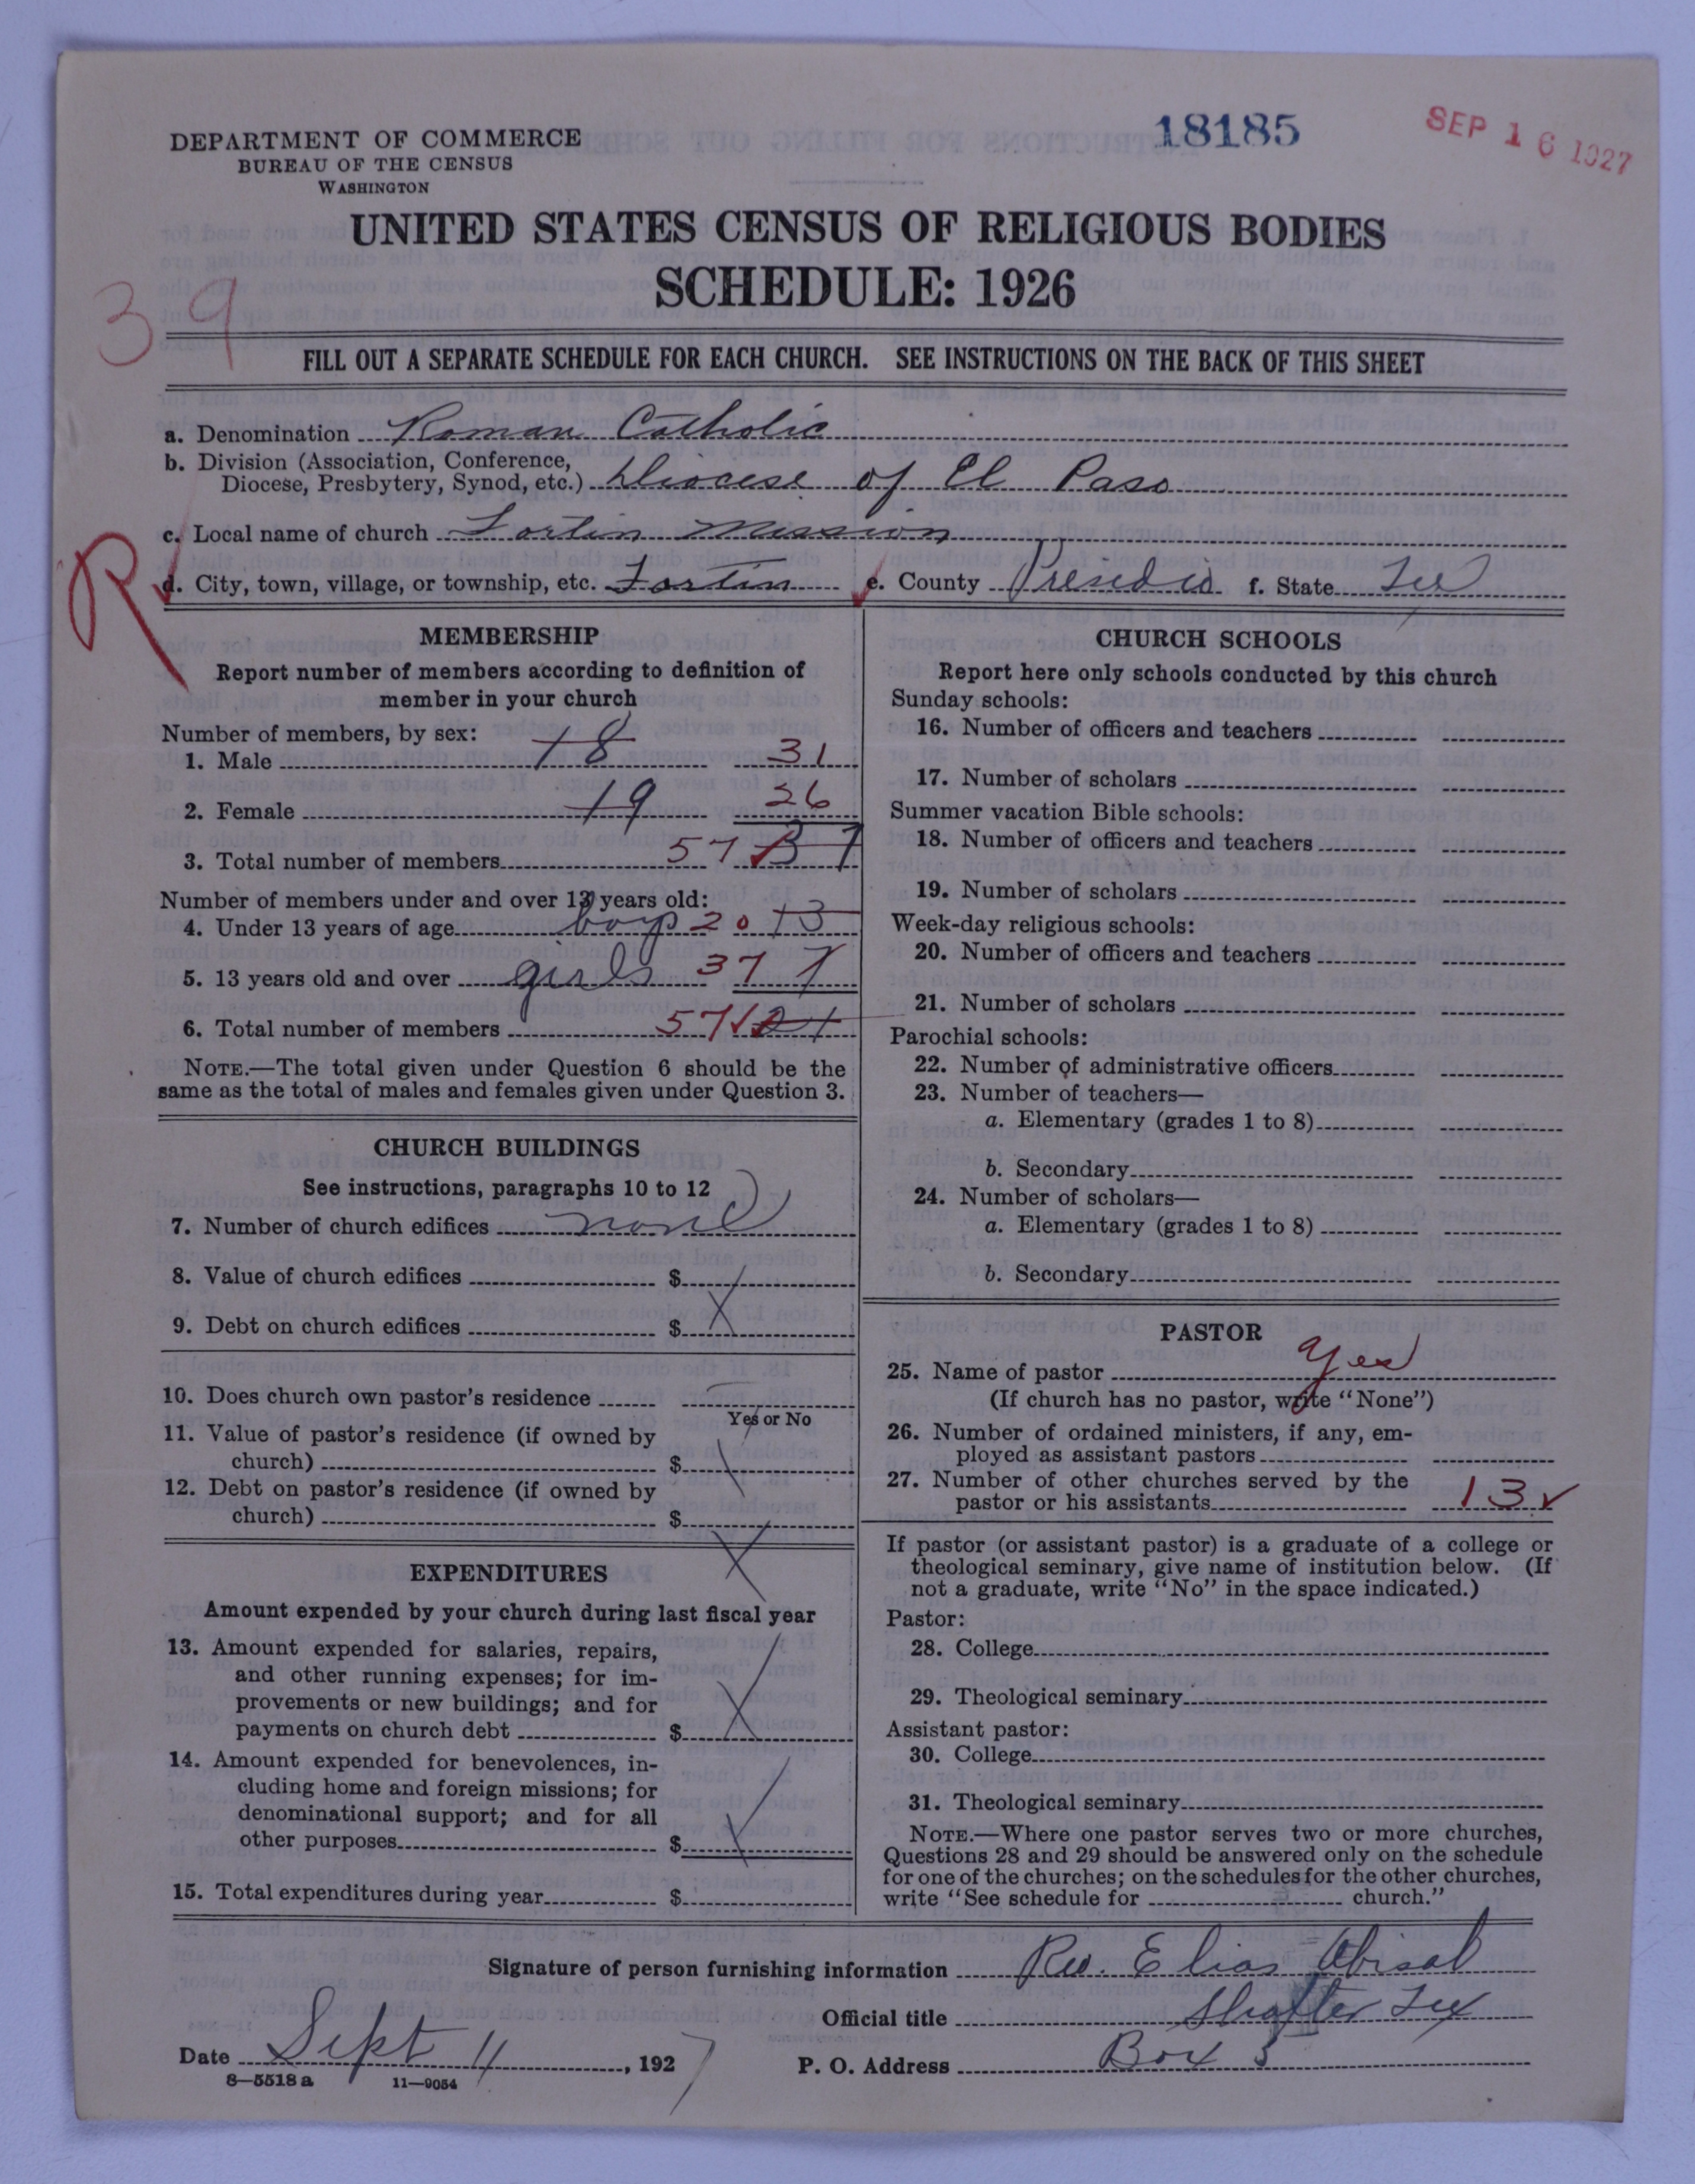 18185
SEP 16 1927
DEPARTMENT OF COMMERCE
BUREAU OF THE CENSUS
WASHINGTON
UNITED STATES CENSUS OF RELIGIOUS BODIES
SCHEDULE: 1926
39
FILL OUT A SEPARATE SCHEDULE FOR EACH CHURCH. SEE INSTRUCTIONS ON THE BACK OF THIS SHEET
a. Denomination Roman Catholic
b. Division (Association, Conference,
Diocese, Presbytery, Synod, etc.) Diocese of El Paso
c. Local name of church Fortin Mission
R
d. City, town, village, or township, etc. Fortin e. County Presidio f. State Tex
MEMBERSHIP
Report number of members according to definition of
member in your church
Number of members, by sex:
1. Male 18 31
2. Female 19 26
3. Total number of members 57 37
Number of members under and over 13 years old:
4. Under 13 years of age boys 20 13
5. 13 years old and over girls 37 7
6. Total number of members 57 21
NOTE.—The total given under Question 6 should be the
same as the total of males and females given under Question 3.
CHURCH BUILDINGS
See instructions, paragraphs 10 to 12
7. Number of church edifices none
8. Value of church edifices $
9. Debt on church edifices $
10. Does church own pastor's residence
Yes or No
11. Value of pastor's residence (if owned by
church) $
12. Debt on pastor's residence (if owned by
church) $
EXPENDITURES
Amount expended by your church during last fiscal year
13. Amount expended for salaries, repairs,
and other running expenses; for im-
provements or new buildings; and for
payments on church debt $
14. Amount expended for benevolences, in-
cluding home and foreign missions; for
denominational support; and for all
other purposes $
15. Total expenditures during year $
CHURCH SCHOOLS
Report here only schools conducted by this church
Sunday schools:
16. Number of officers and teachers
17. Number of scholars
Summer vacation Bible schools:
18. Number of officers and teachers
19. Number of scholars
Week-day religious schools:
20. Number of officers and teachers
21. Number of scholars
Parochial schools:
22. Number of administrative officers
23. Number of teachers—
a. Elementary (grades 1 to 8)
b. Secondary
24. Number of scholars—
a. Elementary (grades 1 to 8)
b. Secondary
PASTOR
25. Name of pastor yes
(If church has no pastor, write "None")
26. Number of ordained ministers, if any, em-
ployed as assistant pastors
27. Number of other churches served by the
pastor or his assistants 13
If pastor (or assistant pastor) is a graduate of a college or
theological seminary, give name of institution below. (If
not a graduate, write "No" in the space indicated.)
Pastor:
28. College
29. Theological seminary
Assistant pastor:
30. College
31. Theological seminary
NOTE.—Where one pastor serves two or more churches,
Questions 28 and 29 should be answered only on the schedule
for one of the churches; on the schedules for the other churches,
write "See schedule for church."
Signature of person furnishing information Rev. Elias Abisal
Official title Shafter Tex
Date Sept 11, 1927 P. O. Address Box 3
8—5518 a 11—9054